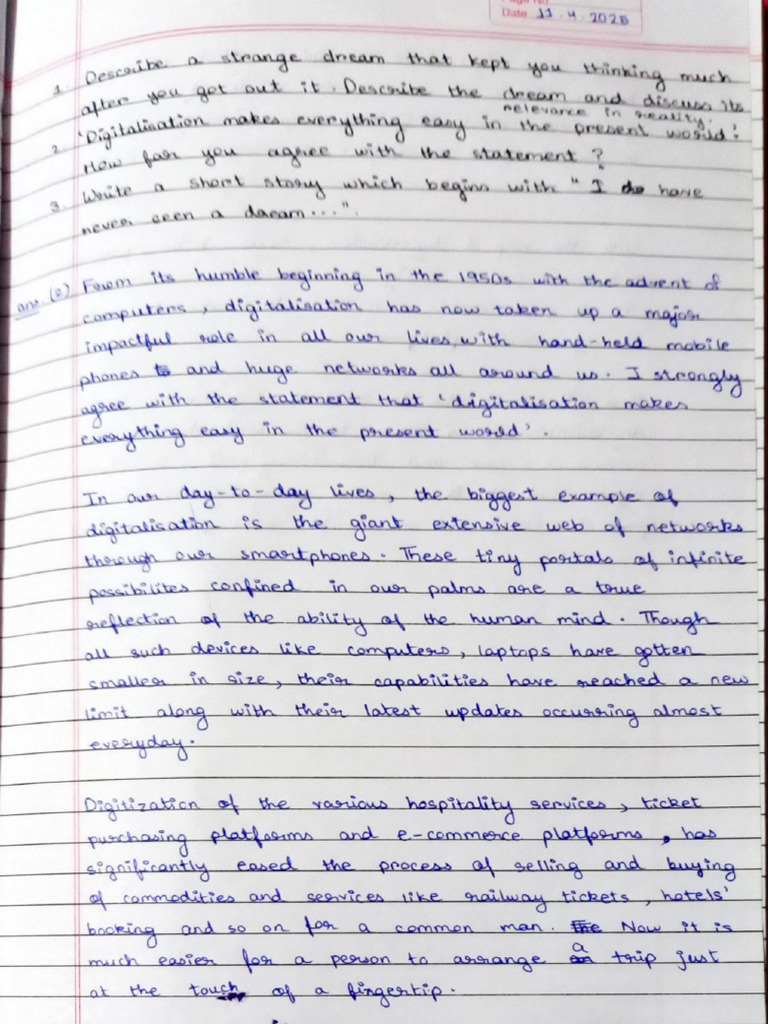 Page No.
Date 11 . 4 . 2025
1. Describe a strange dream that kept you thinking much
after you got out it. Describe the dream and discuss its
relevance in reality.
2. 'Digitalisation makes everything easy in the present world'.
How far you agree with the statement ?
3. Write a short story which begins with " I have
never seen a dream...".
ans. (2) From its humble beginning in the 1950s with the advent of
computers, digitalisation has now taken up a major
impactful role in all our lives, with hand-held mobile
phones and huge networks all around us. I strongly
agree with the statement that 'digitalisation makes
everything easy in the present world'.
In our day-to-day lives, the biggest example of
digitalisation is the giant extensive web of networks
through our smartphones. These tiny portals of infinite
possibilites confined in our palms are a true
reflection of the ability of the human mind. Though
all such devices like computers, laptops have gotten
smaller in size, their capabilities have reached a new
limit along with their latest updates occurring almost
everyday.
Digitization of the various hospitality services, ticket
purchasing platforms and e-commerce platforms, has
significantly eased the process of selling and buying
of commodities and services like railway tickets, hotels'
booking and so on for a common man. Now it is
much easier for a person to arrange a trip just
at the touch of a fingertip.